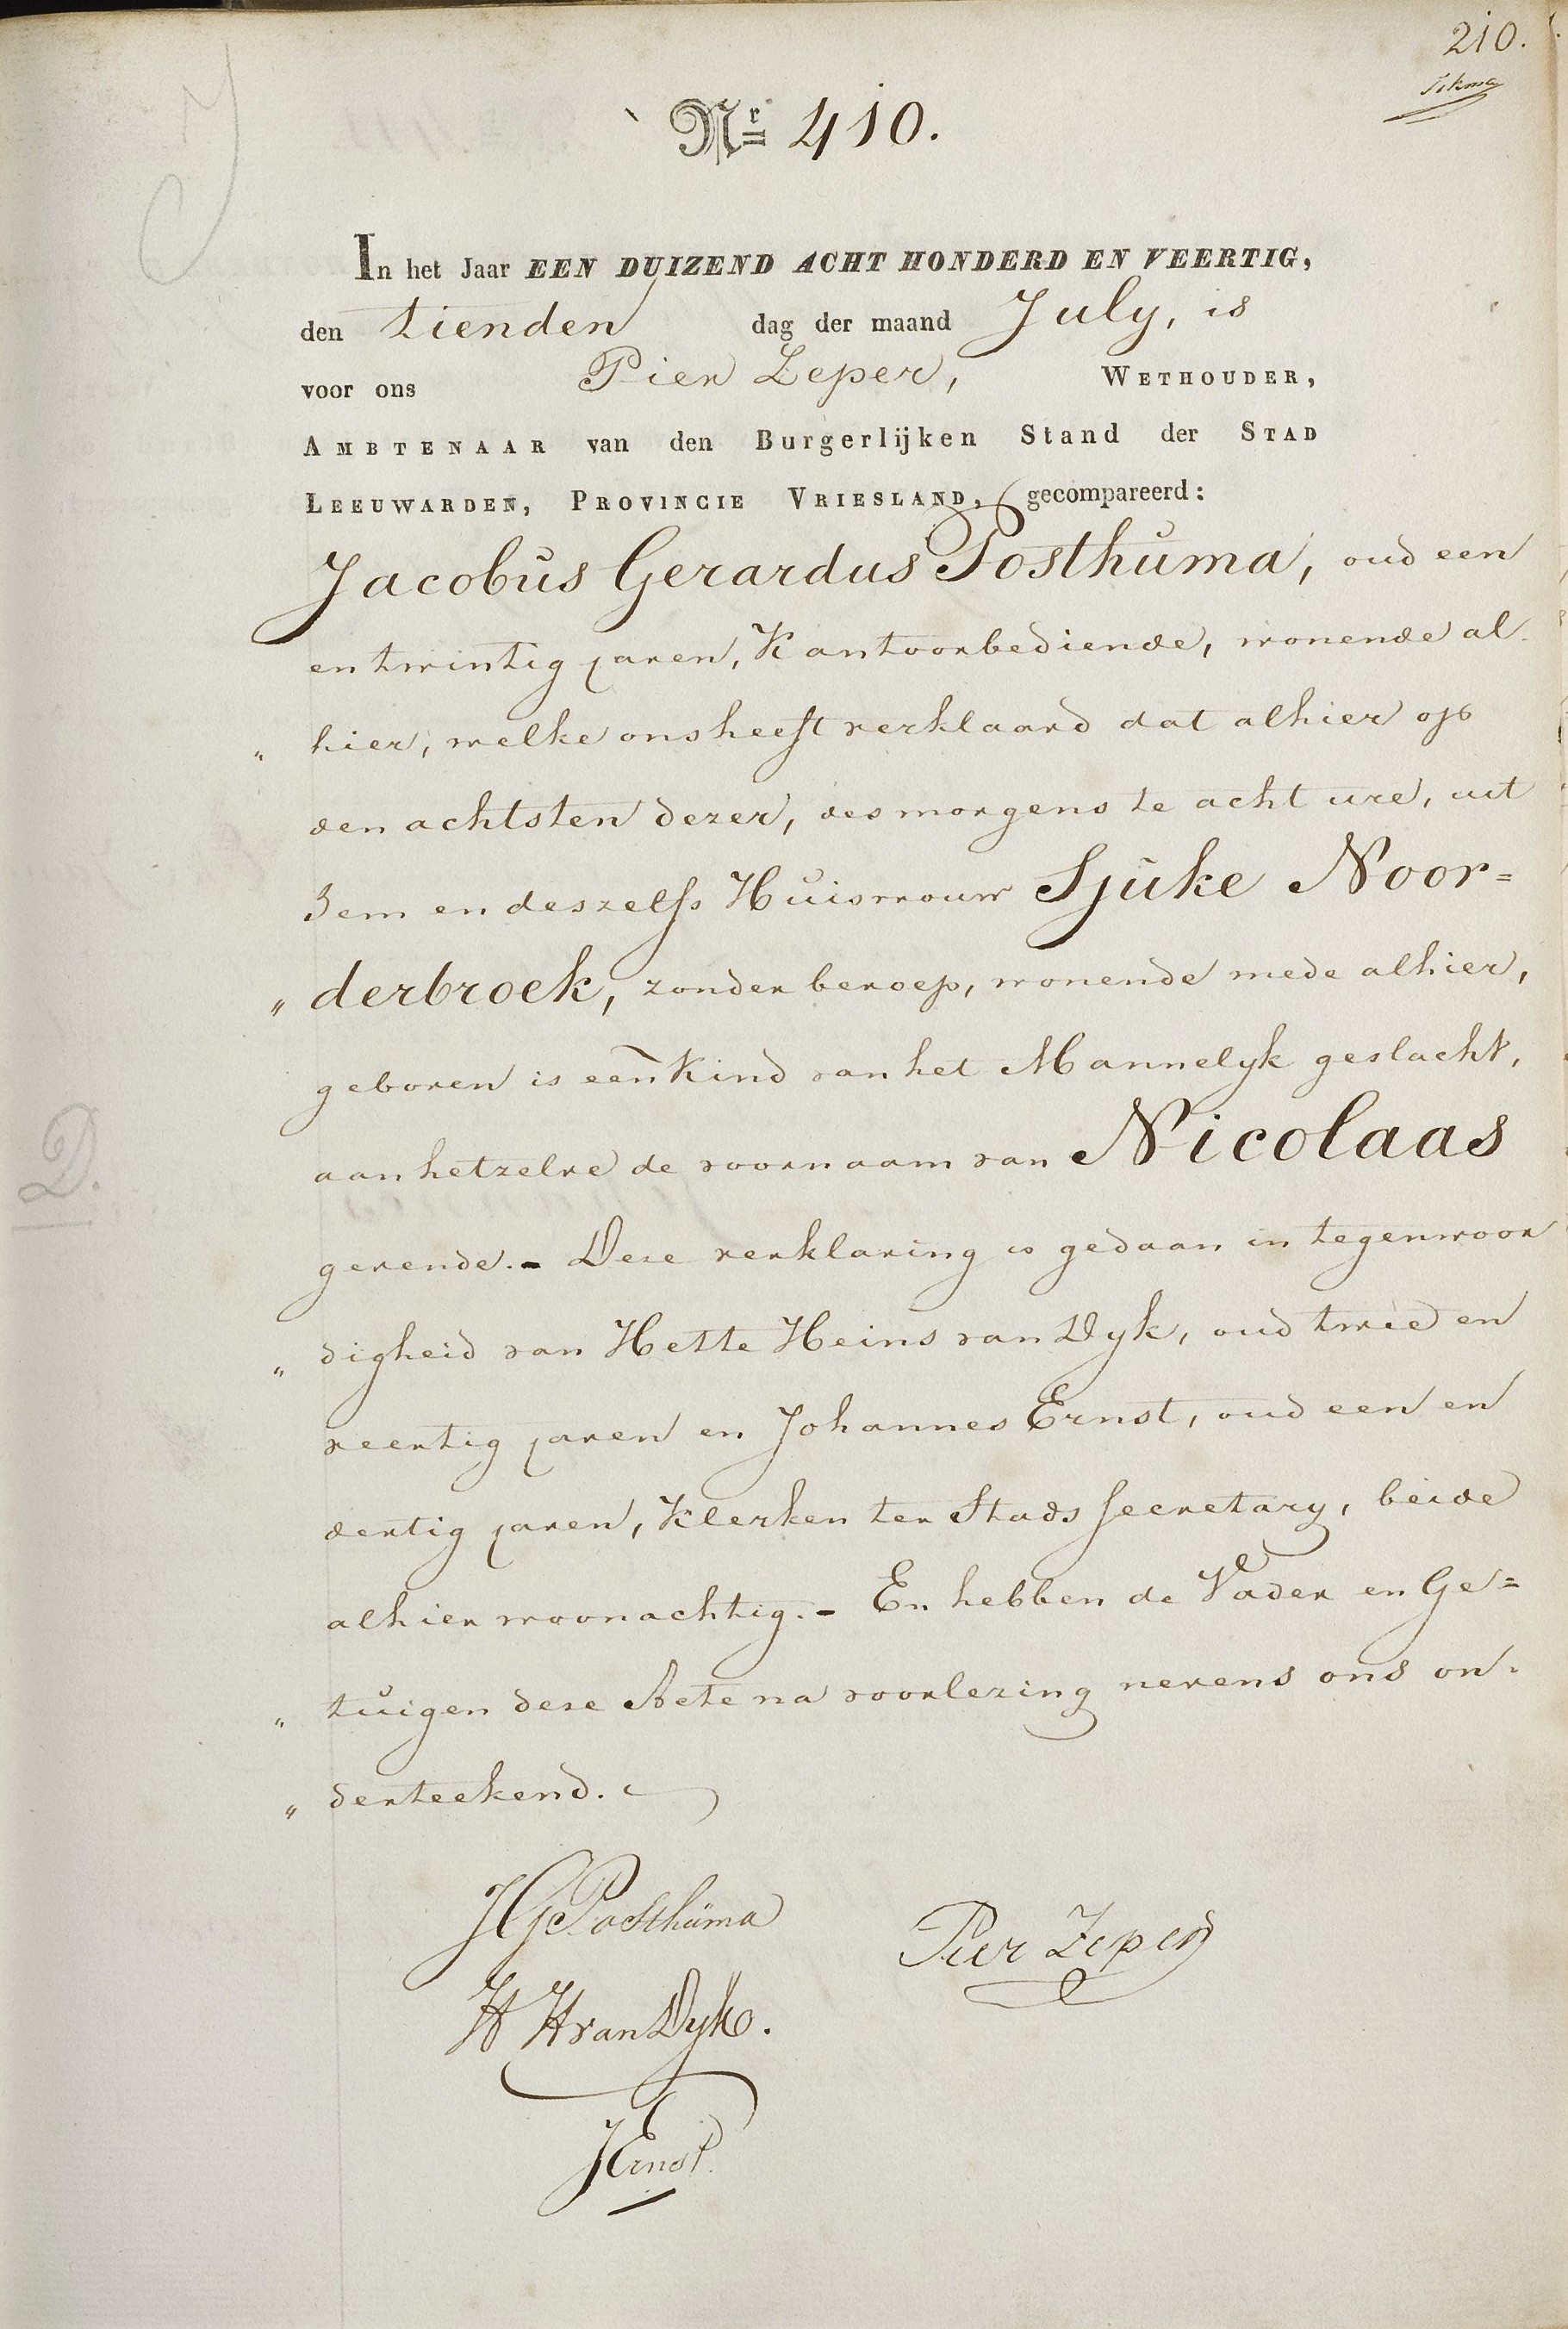 210.
Nr 410.
In het Jaar EEN DUIZEND ACHT HONDERD EN VEERTIG,
den tienden dag der maand July, is
voor ons Pier Zeper, WETHOUDER,
AMBTENAAR van den Burgerlijken Stand der STAD
LEEUWARDEN, PROVINCIE VRIESLAND, gecompareerd:
Jacobus Gerardus Posthuma, oud een
en twintig jaren, Kantoorbediende, wonende al
„ hier, welke ons heeft verklaard dat alhier op
den achtsten dezer, des morgens te acht ure, uit
Hem en deszelfs Huisvrouw Sjuke Noor=
„ derbroek, zonder beroep, wonende mede alhier,
geboren is een Kind van het Mannelyk geslacht,
aan hetzelve de voornaam van Nicolaas
gevende. - Deze verklaring is gedaan in tegenwoor
„ digheid van Hette Heins van Dyk, oud twee en
veertig jaren en Johannes Ernst, oud een en
dertig jaren, Klerken ter Stads Secretary, beide
alhier woonachtig. - En hebben de Vader en Ge=
„ tuigen deze Acte na voorlezing nevens ons on-
„ derteekend.
JG Posthuma
Pier Zeper
H H van Dyk.
J Ernst.
J
D.